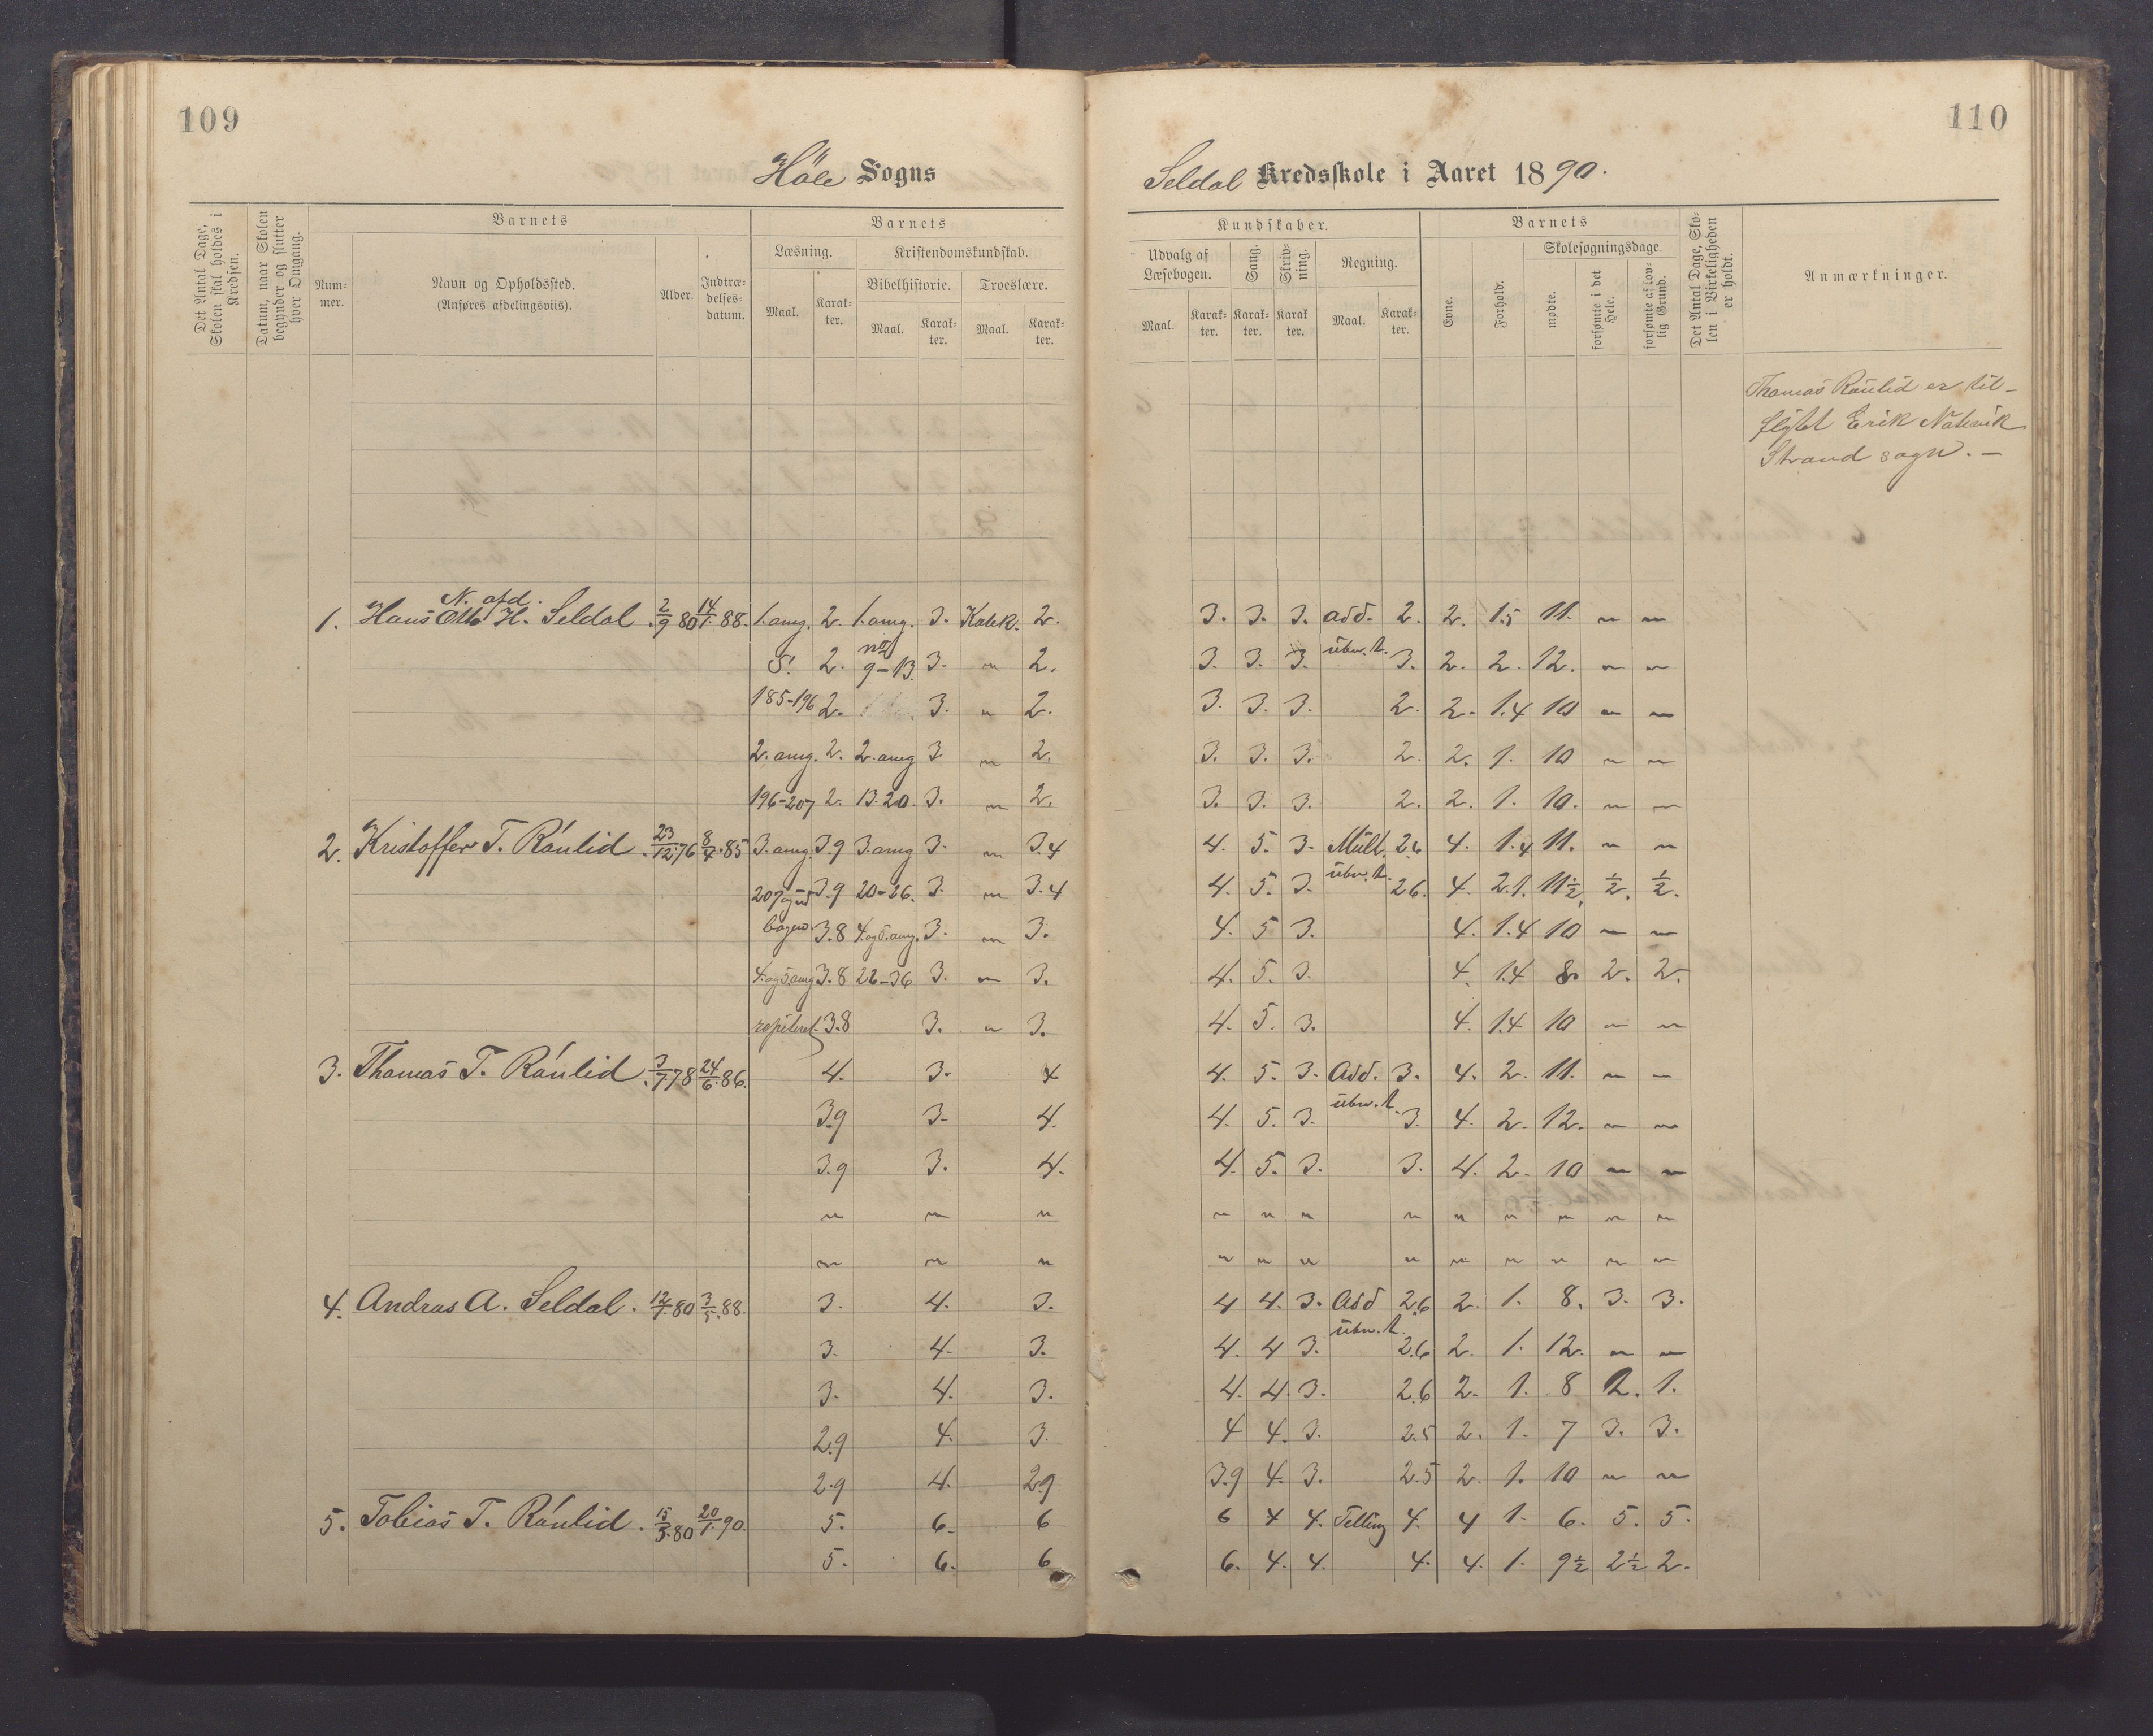 109
110
Höle Sogns
Seldal Kredsskole i Aaret 1890.
Det Antal Dage, Skolen skal holdes i Kredsen.
Datum, naar Skolen begynder og slutter hver Omgang.
Barnets
Nummer.
Navn og Opholdssted.
(Anføres afdelingsviis).
Alder.
Indtrædelsesdatum.
Barnets
Læsning.
Kristendomskundskab.
Bibelhistorie.
Troeslære.
Maal.
Karakter.
Maal.
Karakter.
Maal.
Karakter.
Kundskaber.
Udvalg af Læsebogen.
Sang.
Skrivning.
Regning.
Maal.
Karakter.
Karakter.
Karakter.
Maal.
Karakter.
Barnets
Evne.
Forhold.
Skolesøgningsdage.
mødte.
forsømte i det Hele.
forsømte af lovlig Grund.
Det Antal Dage, Skolen i Virkeligheden er holdt.
Anmærkninger.
Thomas Raulid er til-
flyttet Erik
Strand sogn. –
N. afd.
1. Hans Otto H. Seldal. 2/9 80 14/1. 88. 1. omg. 2. 1. omg. 3. Katek. 2. 3. 3. 3. add. 2. 2. 1.5 11. " "
S. 2. no 9-13. 3. " 2. 3. 3. 3. 3. 2. 2. 12. " "
185-196 2. 3. " 2. 3. 3. 3. 2. 2. 1.4 10 " "
2. omg. 2. 2. omg 3 " 2. 3. 3. 3. 2. 2. 1. 10 " "
196-207 2. 13.20. 3. " 2. 3. 3. 3. 2. 2. 1. 10. " "
2. Kristoffer T. Raulid. 23/12. 76 8/4. 85 3. omg. 3.9 3. omg 3. " 3.4 4. 5. 3. Mult. 2.6 4. 1.4 11. " "
207 og ud 3.9 20-26. 3. " 3.4 4. 5. 3. 2.6. 4. 2.1. 11½. ½. ½.
bogen. 3.8 4. og 5. omg. 3. " 3. 4. 5 3. 4. 1.4 10 " "
4. og 5. omg 3.8 26-36 3. " 3. 4. 5. 3. 4. 1.4 8. 2. 2.
repeteret. 3.8 3. " 3. 4. 5. 3. 4. 1.4 10 " "
3. Thomas T. Raulid 3/7. 78 24/6. 86. 4. 3. 4 4. 5. 3. Add. 3. 4. 2. 11. " "
3.9 3. 4. 4. 5. 3. 3. 4. 2. 12. " "
3.9 3. 4. 4. 5. 3. 3. 4. 2. 10 " "
" " " " " " " " " " " "
" " " " " " " " " " " "
4. Andras A. Seldal. 12/7. 80 3/5. 88. 3. 4. 3. 4 4. 3. Add 2.6 2. 1. 8. 3. 3.
3. 4. 3. 4. 4 3. 2.6 2. 1. 12. " "
3. 4. 3. 4. 4. 3. 2.6 2. 1. 8 2. 1.
2.9 4. 3. 4 4. 3. 2.5 2. 1. 7 3. 3.
2.9 4. 2.9 3.9 4. 3. 2.5 2. 1. 10 " "
5. Tobias T. Raulid. 15/3. 80 20/1. 90. 5. 6. 6 6 4 4. Telling 4. 4 1. 6. 5. 5.
5. 6. 6 6. 4. 4. 4. 4. 1. 9½ 2½ 2.